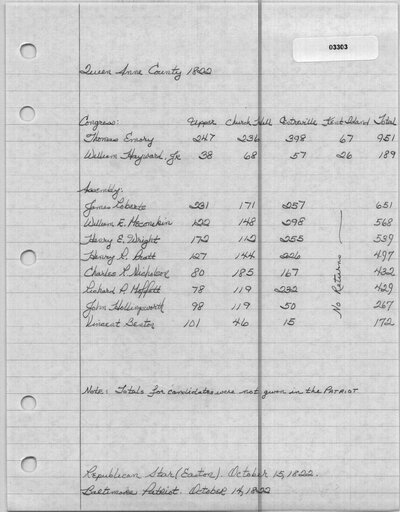 03303
Queen Anne County 1822
Congress: Upper Church Hill Centreville Kent Island Total
Thomas Emory 247 236 398 67 951
William Hayward, Jr 38 68 57 26 189
Assembly:
James Roberts 231 171 257 651
William R. Meconikin 122 148 298 568
Henry E. Wright 172 112 255 539
Henry Pratt 127 144 226 497
Charles Nicholson 80 185 167 432
Richard Moffett 78 119 232 429
John Hollingsworth 98 119 50 267
Vincent Bestor 101 46 15 172
No Returns
Note: Totals for candidates were not given in the PATRIOT
Republican Star (Easton). October 15, 1822.
Baltimore Patriot. October 14, 1822